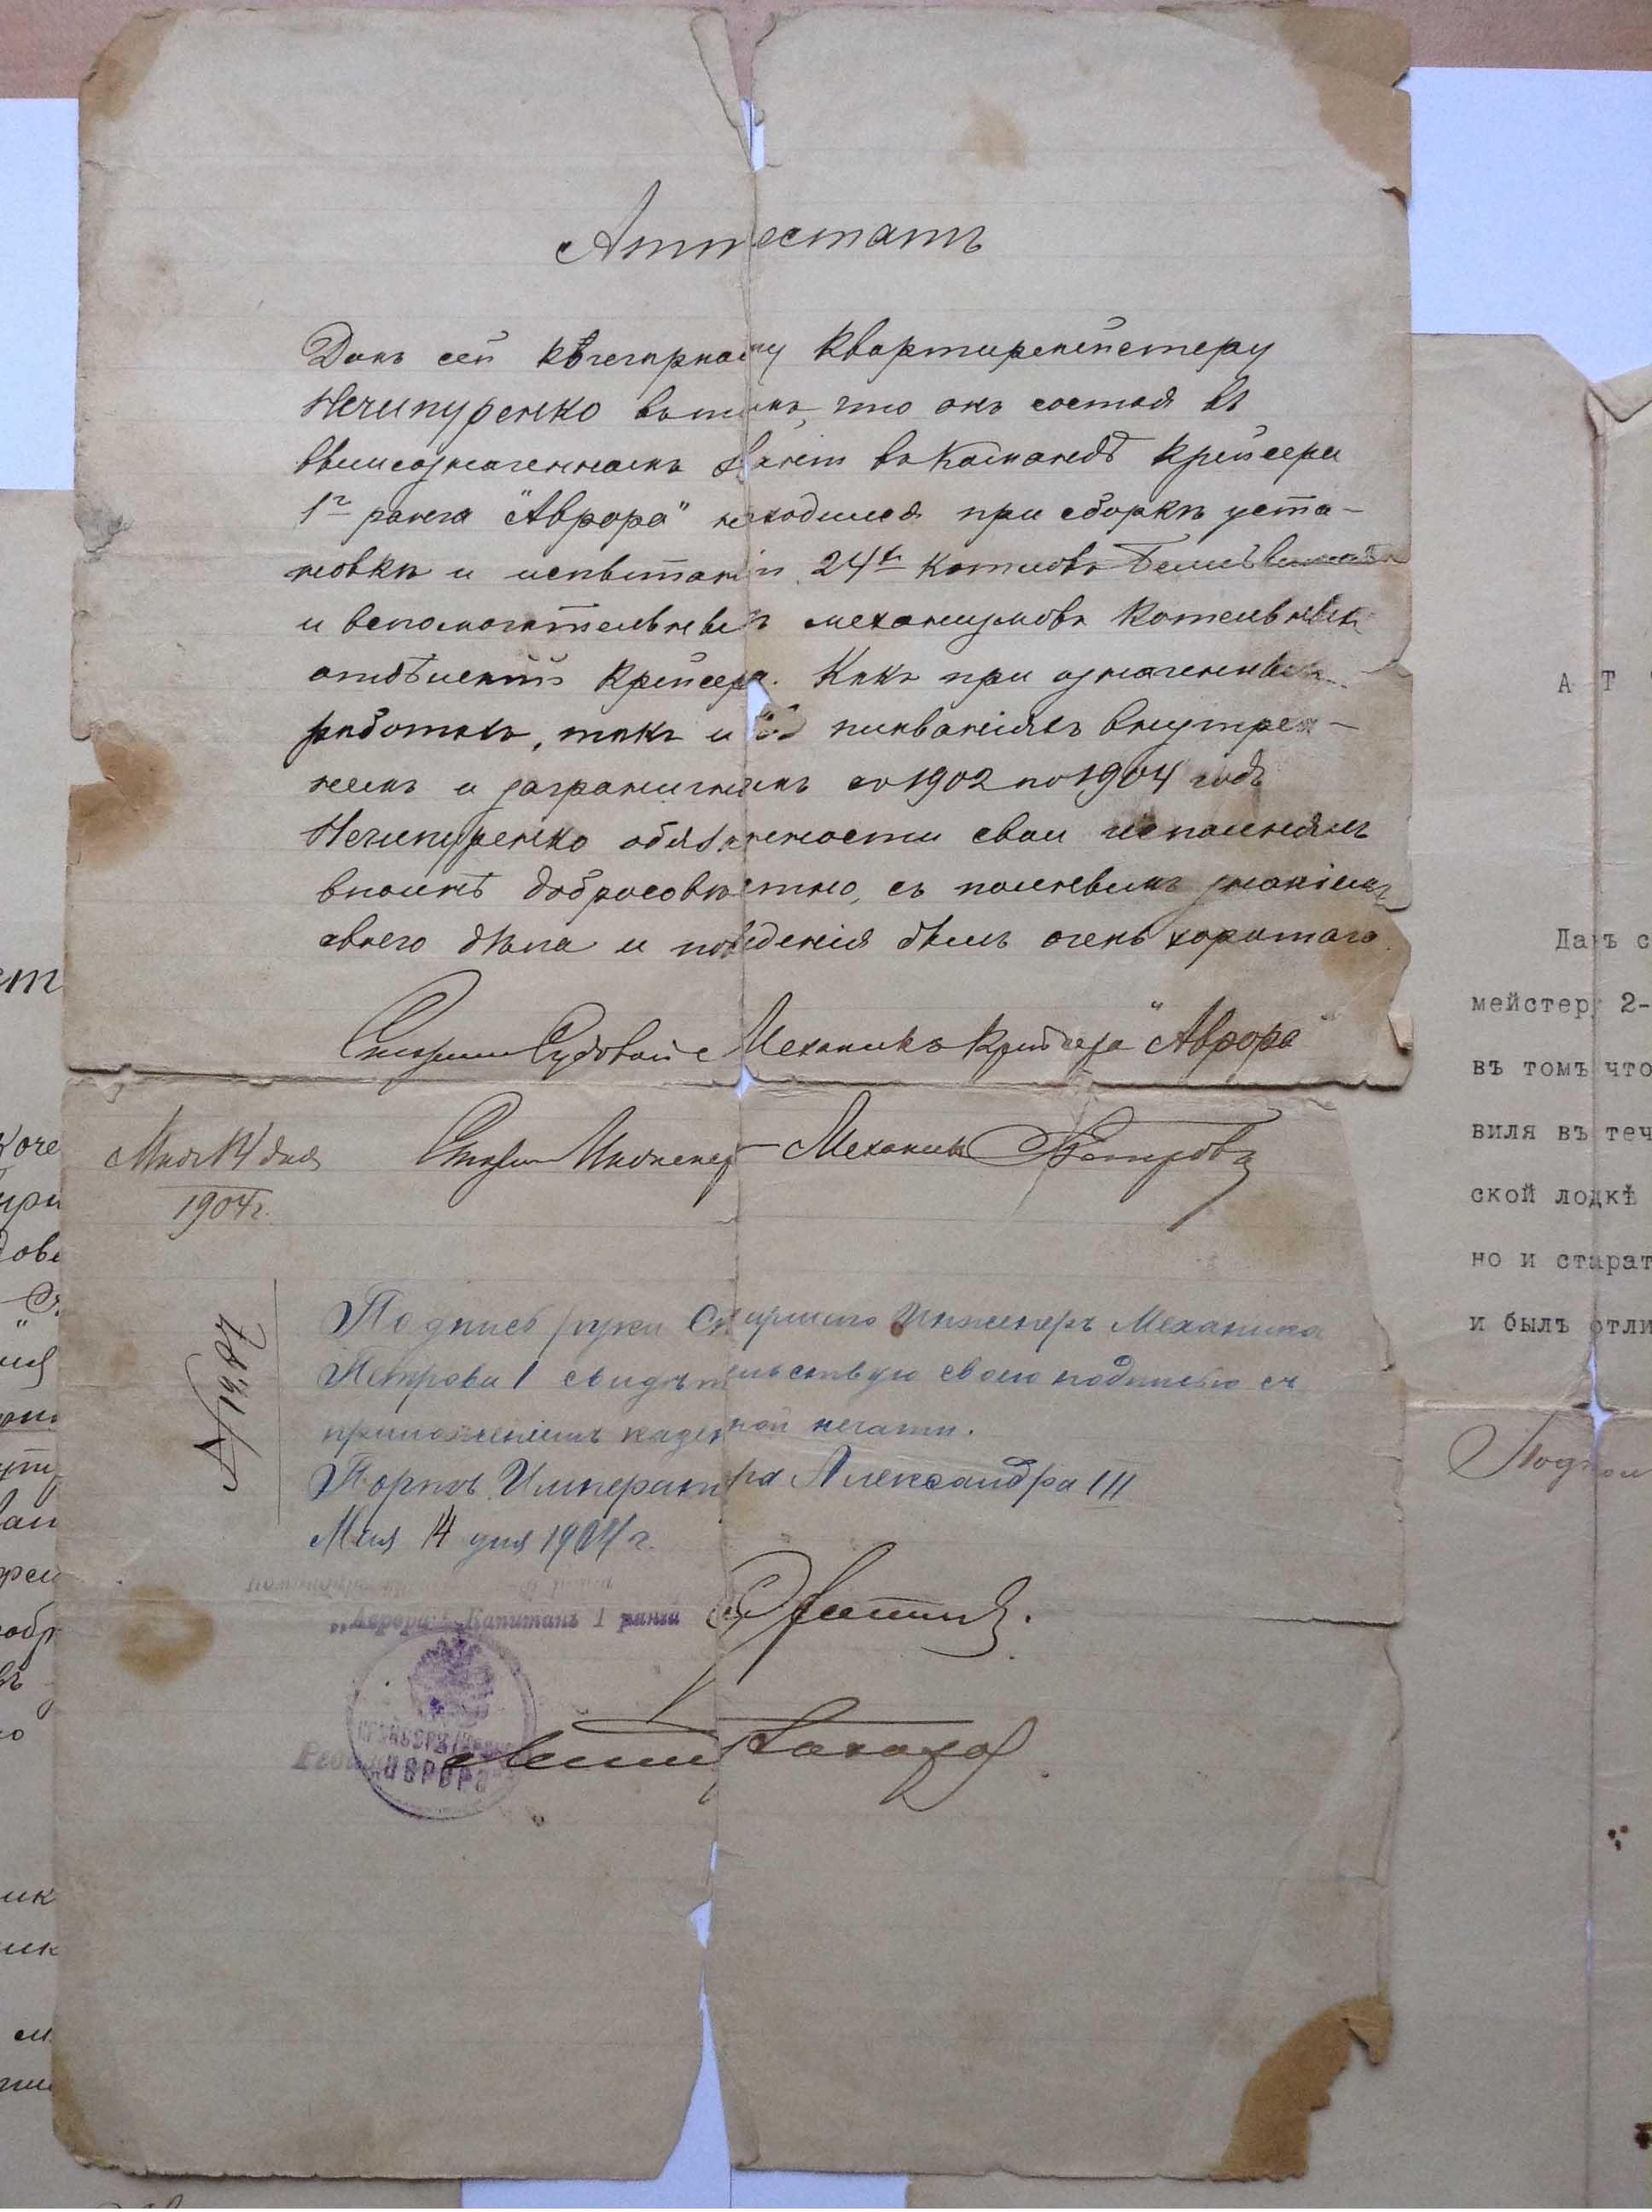 Аттестатъ
Данъ сей кочегарному квартирмейстеру
Нечипуренко въ томъ, что онъ состоя въ
вышеозначенномъ званіи въ командѣ крейсера
1го ранга "Аврора" находился при сборкѣ уста-
новкѣ и испытаніи 24х котловъ Бельвиля
и вспомогательныхъ механизмовъ котельныхъ
отдѣленій крейсера. Какъ при означенныхъ
работахъ, такъ и въ плаваніяхъ внутрен-
немъ и заграничномъ съ 1902 по 1904 годъ
Нечипуренко обязанности свои исполнялъ
вполнѣ добросовѣстно, съ полнымъ знаніемъ
своего дѣла и поведенія былъ очень хорошаго.
Старшій Судовой Механикъ Крейсера "Аврора"
Старшій Инженеръ-Механикъ Петровъ
Мая 14 дня
1904 г.
Подпись руки Старшаго Инженеръ Механика
Петрова 1 свидѣтельствую своею подписью съ
приложеніемъ казенной печати.
Портъ Императора Александра III
Мая 14 дня 1904 г.
№ 1987
"Аврора" Капитанъ 1 ранга
КРЕЙСЕРЪ
АВРОРА
А Т
Данъ с
мейстеру 2-
въ томъ что
виля въ теч
ской лодкѣ
но и старат
и былъ отли